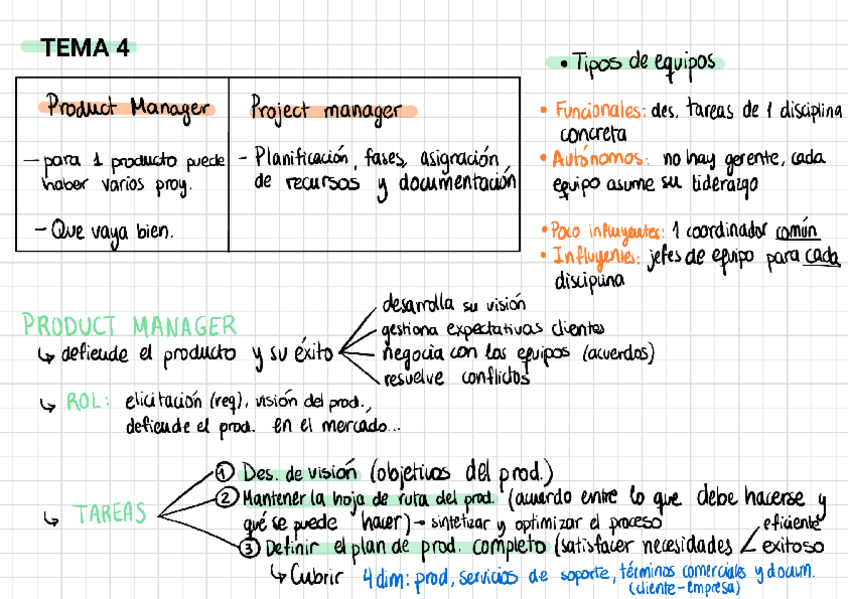 TEMA 4
Product Manager
– para 1 producto puede
haber varios proy.
– Que vaya bien.
Project manager
- Planificación, fases, asignación
de recursos y documentación
• Tipos de equipos
• Funcionales: des. tareas de 1 disciplina
concreta
• Autónomos: no hay gerente, cada
equipo asume su liderazgo
• Poco influyentes: 1 coordinador común
• Influyentes: jefes de equipo para cada
disciplina
PRODUCT MANAGER
↳ defiende el producto y su éxito
desarrolla su visión
gestiona expectativas clientes
negocia con los equipos (acuerdos)
resuelve conflictos
↳ ROL: elicitación (req), visión del prod.,
defiende el prod. en el mercado...
↳ TAREAS
① Des. de visión (objetivos del prod.)
② Mantener la hoja de ruta del prod. (acuerdo entre lo que debe hacerse y
qué se puede hacer) → sintetizar y optimizar el proceso
③ Definir el plan de prod. completo (satisfacer necesidades
eficiente
exitoso
↳ Cubrir 4 dim: prod, servicios de soporte, términos comerciales y docum.
(cliente-empresa)